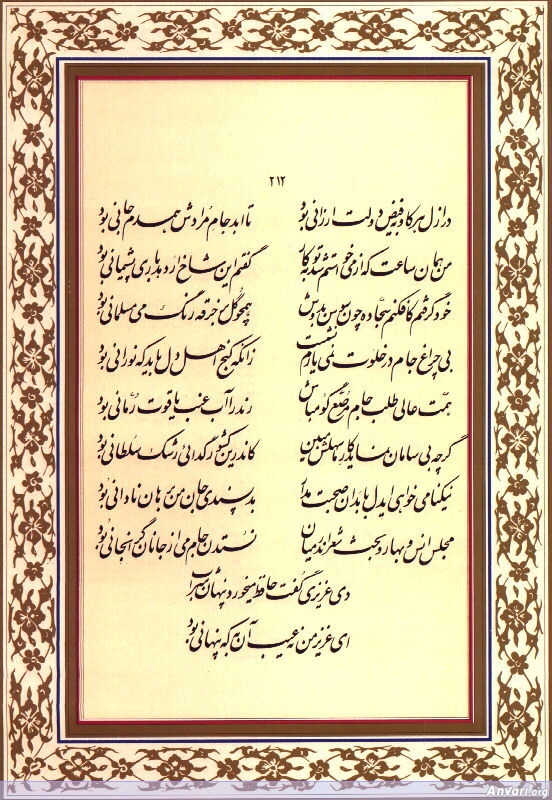 ۲۱۲
در ازل هر کاو به فیض دولت ارزانی بود تا ابد جام مرادش همدم جانی بود
من همان ساعت که از می خواستم شد توبه کار گفتم این شاخ ار دهد باری پشیمانی بود
خود گرفتم کافکنم سجّاده چون سوسن بدوش همچو گل بر خرقه رنگ می مسلمانی بود
بی چراغ جام در خلوت نمی یارم نشست زانکه کنج اهل دل باید که نورانی بود
همّت عالی طلب جام مرصّع گو مباش رند را آب عنب یاقوت رمّانی بود
گرچه بی سامان نماید کار ما سهلش مبین کاندرین کشور گدائی رشک سلطانی بود
نیکنامی خواهی ایدل با بدان صحبت مدار بد پسندی جان من برهان نادانی بود
مجلس انس و بهار و بحث شعر اندر میان نستدن جام می از جانان گرانجانی بود
دی عزیزی گفت حافظ میخورد پنهان شراب
ای عزیز من نه عیب آن به که پنهانی بود
Anvari.org